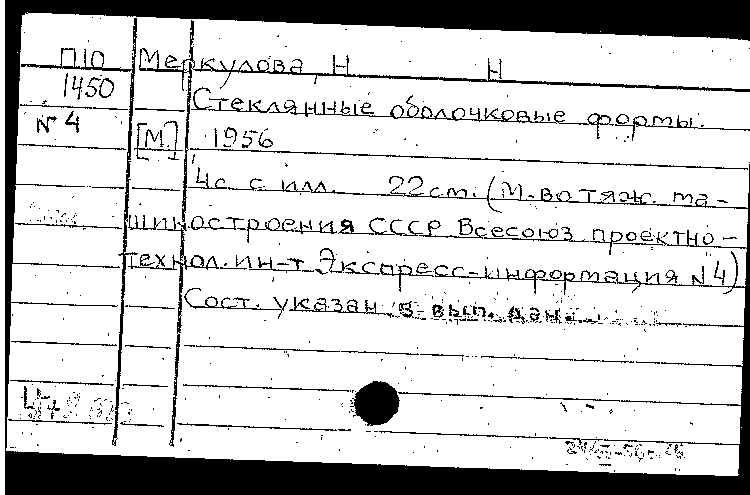 П10 Меркулова, Н Н
1450
Стеклянные оболочковые формы.
№ 4 [М.] 1956
4с. с илл. 22 см. (М-во тяж. ма-
шиностроения СССР Всесоюз. проектно-
технол. ин-т. Экспресс-информация № 4)
Сост. указан в вып. дан.